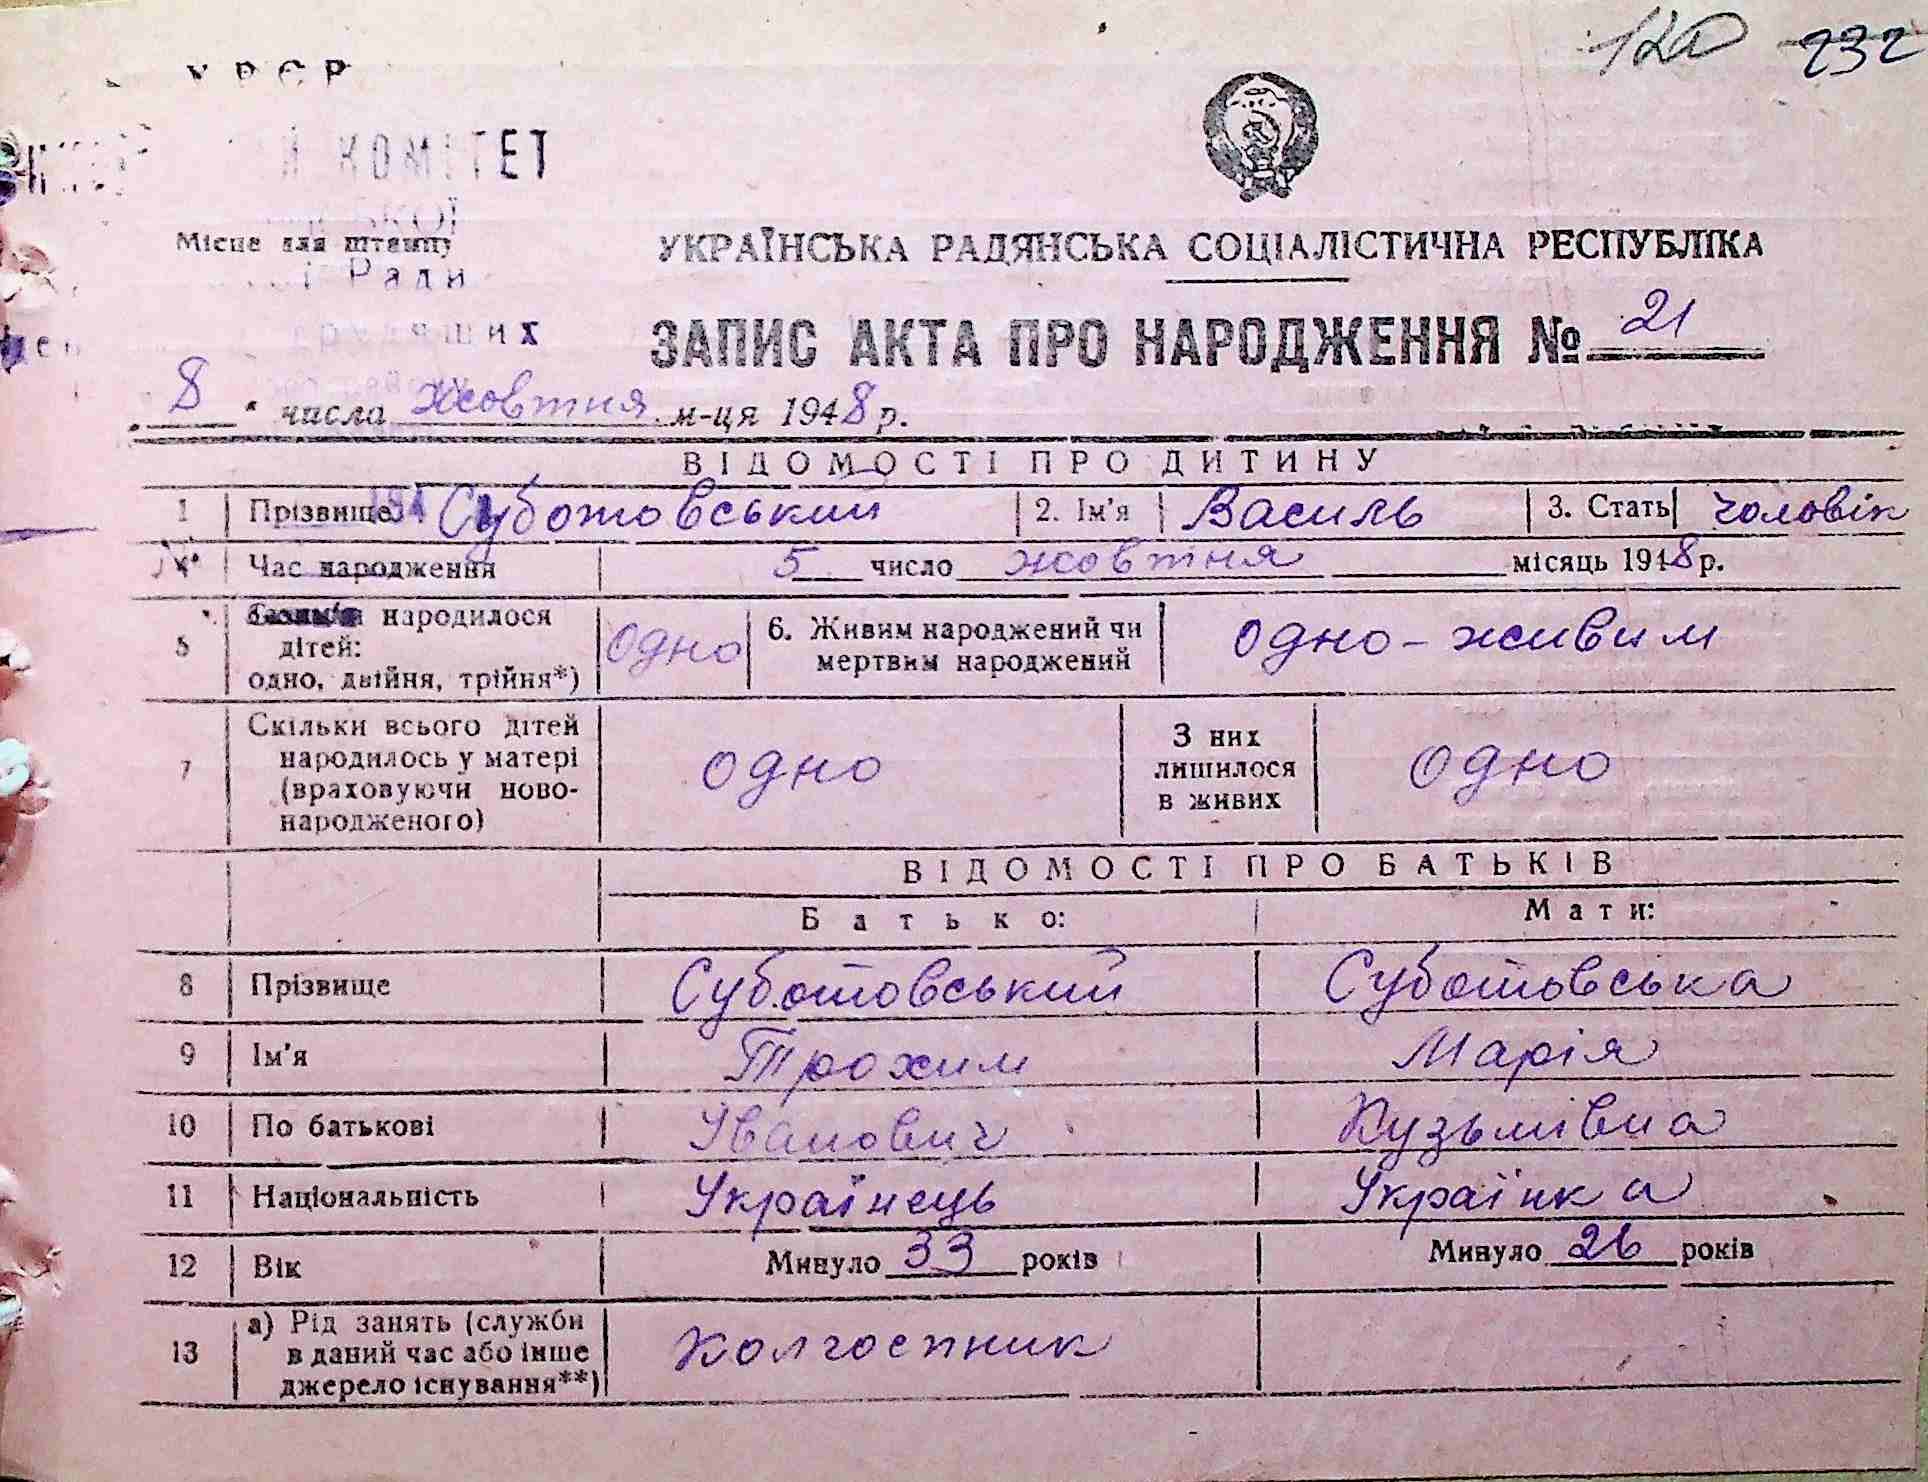 120 232
УРСР
КОМІТЕТ
Місце для штампу
і Ради
трудящих
УКРАЇНСЬКА РАДЯНСЬКА СОЦІАЛІСТИЧНА РЕСПУБЛІКА
ЗАПИС АКТА ПРО НАРОДЖЕННЯ № 21
8 числа жовтня м-ця 1948 р.
ВІДОМОСТІ ПРО ДИТИНУ
1 Прізвище Суботовський 2. Ім'я Василь 3. Стать чоловік
Час народження 5 число жовтня місяць 1948 р.
5 народилося дітей: одно, двійня, трійня*) одно 6. Живим народжений чи мертвим народжений одно - живим
7 Скільки всього дітей народилось у матері (враховуючи ново-народженого) одно З них лишилося в живих одно
ВІДОМОСТІ ПРО БАТЬКІВ
Батько: Мати:
8 Прізвище Суботовський Суботовська
9 Ім'я Трохим Марія
10 По батькові Іванович Кузьмівна
11 Національність Українець Українка
12 Вік Минуло 33 років Минуло 26 років
13 а) Рід занять (служби в даний час або інше джерело існування**) Колгоспник